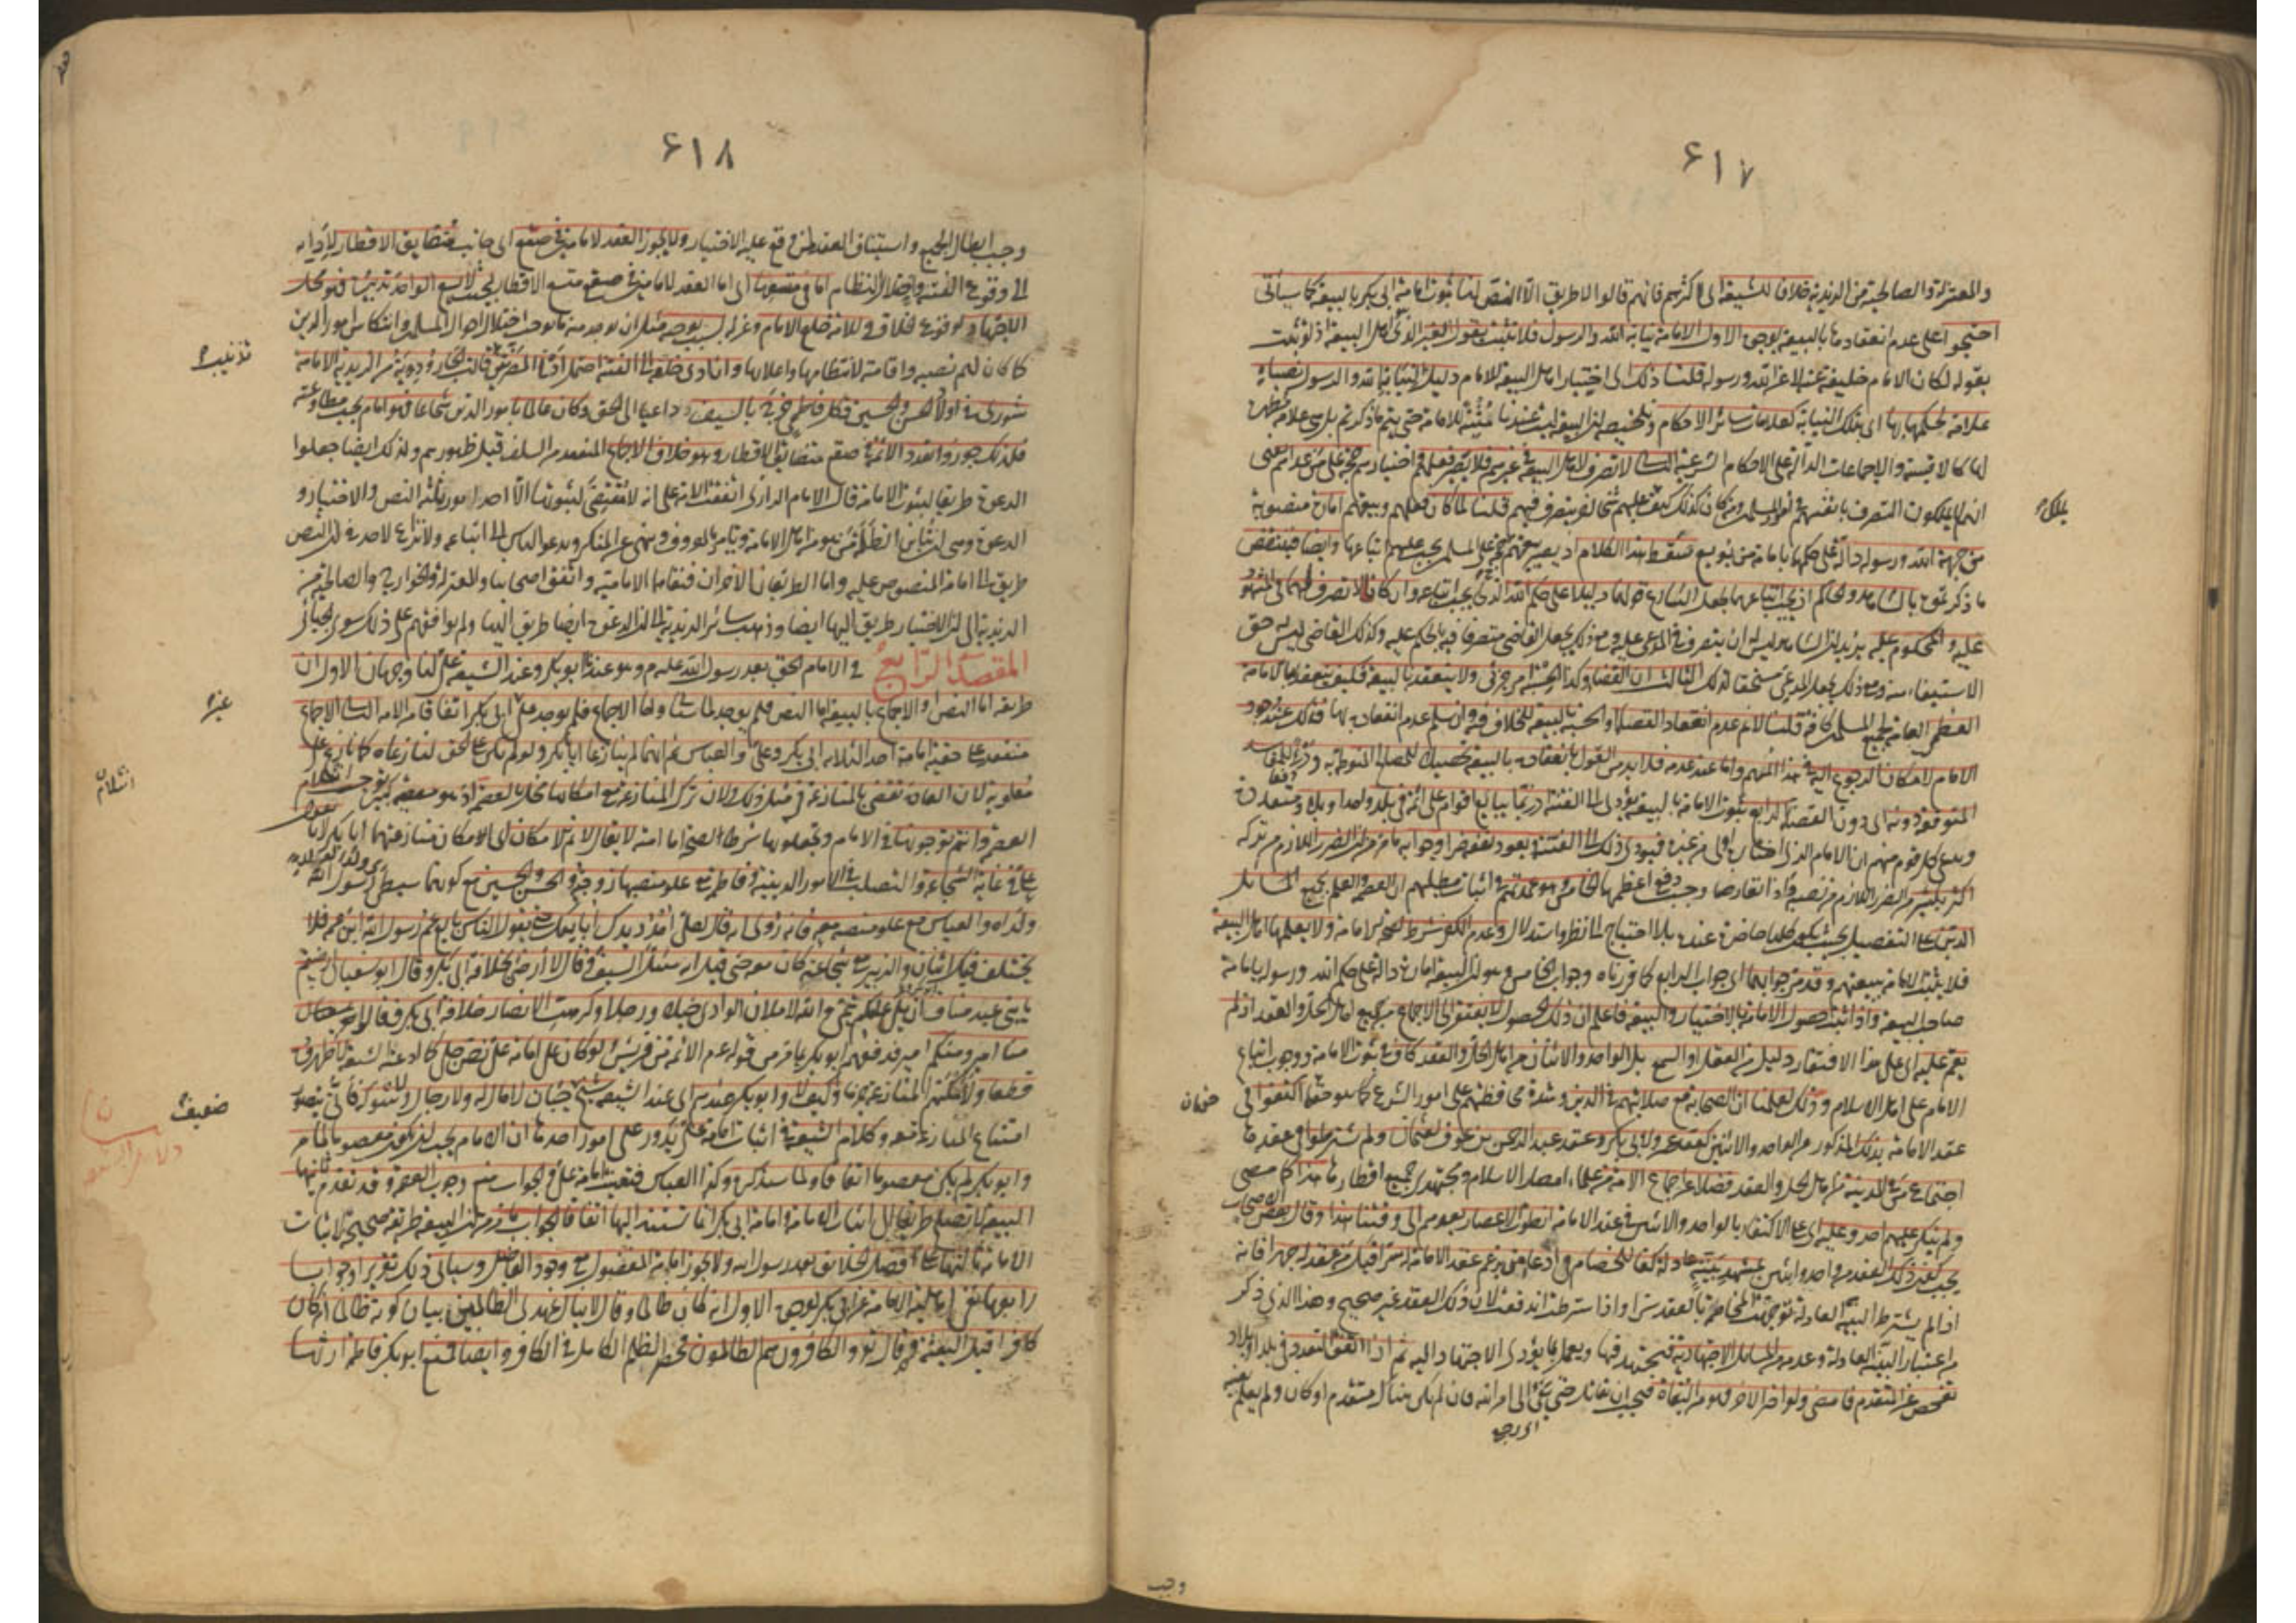 ٦١٧
والمعتزلة والصالحية من الزيدية خلافا للشيعة اى اكثرهم فانهم قالوا لا طريق الا النص لنا ثبوت امامة ابى بكر بالبيعة كما سيأتى
احتجوا على عدم انعقادها بالبيعة بوجوه الاول الامامة نيابة الله والرسول فلا تثبت بقول الغير الذى هو اهل البيعة اذ لو ثبتت
بقوله لكان الامام خليفة عنه لا عن الله ورسوله قلنا ذلك اى اختيار اهل البيعة للامام دليل لنيابة الله والرسول نصباه
علامة لحكمهما بها اى بتلك النيابة كعلامات سائر الاحكام وتلخيصه ان البيعة ليست عندنا مثبتة للامامة حتى يتم ما ذكرتم بل هى علامة مظهرة
لها كالاقيسة والاجماعات الدالة على الاحكام الشرعية الثانى لا تصرف لاهل البيعة فى غيرهم فلا يصير فعلهم واختيارهم حجة على من عداهم يعنى
انهم لا يملكون التصرف بانفسهم فى امور المسلمين ومن كان كذلك كيف يملكهم شخصا لغيره يتصرف فيهم قلنا لما كان فعلهم وبيعتهم امارة منصوبة
من جهة الله ورسوله دالة على حكمهما بامامة من بويع سقط هذا الكلام اذ يصير بيعتهم حجة على المسلمين يجب عليهم اتباعها وايضا فينتقض
ما ذكرتموه بالشاهد والحاكم اذ يجب اتباعهما لجعل الشارع قولهما دليلا على حكم الله الذى يجب اتباعه وان كانا لا تصرف لهما فى المشهود
عليه والمحكوم عليه يريد ان الشاهد ليس له ان يتصرف فى المدعى عليه ومع ذلك يجعل القاضى متصرفا فيه بالحكم عليه وكذلك القاضى ليس له حق
الاستيفاء منه ومع ذلك يجعل المدعى مستحقا لذلك الثالث ان القضاء وكذا الحسبة امر جزئى ولا ينعقد بالبيعة فكيف ينعقد بها الامامة
العظمى العامة لجميع المسلمين كافة قلنا لا نم عدم انعقاد القضاء والحسبة بالبيعة للخلاف فيه وان سلم عدم انعقاده بها فذلك عند وجود
الامام لامكان الرجوع اليه فى هذا المهم واما عند عدمه فلا بد من القول بانعقاده بالبيعة تحصيلا للمصالح المنوطة به ودرء للمفاسد
المتوقعة دونه اى دون القضاء الرابع ثبوت الامامة بالبيعة يؤدى الى الفتنة اذ ربما يبايع اقوام على ائمة فى بلد واحد او بلاد متعددة
ويدعى كل قوم منهم ان الامام الذى اختاره اولى من غيره فيؤدى ذلك الى الفتنة ويعود نفعه ضرا وجوابه ما مر من ان الضرر اللازم من تركه
اكثر بكثير من الضرر اللازم من نصبه واذا تعارضا وجب دفع اعظمهما الخامس وهو عمدتهم فى اثبات مطلبهم ان العصمة والعلم بجميع المسائل
الدين على التفصيل بحيث يكون كلها حاضرة عنده بلا احتياج الى نظر واستدلال وعدم الكفر شرط لصحة الامامة ولا يعلمها اهل البيعة
فلا يثبت الامامة ببيعتهم وقد مر جوابهما اى جواب الرابع كما قررناه وجواب الخامس وهو ان البيعة امارة دالة على حكم الله ورسوله بامامة
صاحب البيعة واذا ثبت حصول الامامة بالاختيار والبيعة فاعلم ان ذلك الحصول لا يفتقر الى الاجماع من جميع اهل الحل والعقد اذ لم
يقم عليه اى على هذا الافتقار دليل من العقل او السمع بل الواحد والاثنان من اهل الحل والعقد كاف فى ثبوت الامامة ووجوب اتباع
الامام على اهل الاسلام وذلك لعلمنا ان الصحابة مع صلابتهم فى الدين وشدة محافظتهم على امور الشرع كما هو حقها اكتفوا فى
عقد الامامة بذلك المذكور من الواحد والاثنين كعقد عمر لابى بكر وعقد عبد الرحمن بن عوف لعثمان ولم يشترطوا فى عقدها
اجتماع من فى المدينة من اهل الحل والعقد فضلا عن اجماع الامة من علماء امصار الاسلام ومجتهدى جميع اقطارها هذا كما مضى
ولم ينكر عليهم احد وعليه اى على الاكتفاء بالواحد والاثنين فى عقد الامامة انطوت الاعصار بعدهم الى وقتنا هذا وقال بعض الاصحاب
يجب كون ذلك العقد من واحد او اثنين بمشهد بينة عادلة كفا للخصام فى ادعاء من يزعم عقد الامامة له سرا قبل من عقد له جهرا فانه
اذا لم يشترط البينة العادلة توجهت المخاصمة بالعقد سرا واذا شرطت اندفعت لان ذلك العقد غير صحيح وهذا الذى ذكر
من اعتبار البينة العادلة وعدمه من المسائل الاجتهادية فيجتهد فيها ويعمل بما يؤدى الاجتهاد اليه ثم اذا اتفق التعدد فى بلد او بلاد
تفحص عن المتقدم فامضى ولو اصر الآخر فهو من البغاة فيجب ان يقاتل حتى يفئ الى امر الله فان لم يكن هناك متقدم او كان ولم يعلم بعينه
وجب
٦١٨
وجب ابطال الجميع واستيناف العقد لمن وقع عليه الاختيار ولا يجوز العقد لامامين فى صقع اى جانب متضايق الاقطار لادائه
الى وقوع الفتنة واختلال النظام اما فى متسعها اى اما العقد لامامين فى صقع متسع الاقطار بحيث لا يسع الواحد تدبيره فهو محل
الاجتهاد لوقوع الخلاف وللامة خلع الامام وعزله بسبب يوجبه مثل ان يوجد منه ما يوجب اختلال احوال المسلمين وانتكاس امور الدين
كما كان لهم نصبه واقامته لانتظامها واعلائها وان ادى خلعه الى الفتنة احتمل ادنى المضرتين قالت الجارودية من الزيدية الامامة
شورى فى اولاد الحسن والحسين فكل فاطمى خرج بالسيف داعيا الى الحق وكان عالما بامور الدين شجاعا فهو امام يجب مطاوعته
فلذلك جوزوا تعدد الائمة فى صقع متضايق الاقطار وهو خلاف الاجماع المنعقد من السلف قبل ظهورهم ولذلك ايضا جعلوا
الدعوة طريقا لثبوت الامامة قال الامام الرازى اتفقت الامة على انه لا مقتضى لثبوتها الا احد امور ثلثة النص والاختيار و
الدعوة وهى ان يباين الظلمة من هو من اهل الامامة ويأمر بالمعروف وينهى عن المنكر ويدعو الناس الى اتباعه ولا نزاع لاحد فى ان النص
طريق الى امامة المنصوص عليه واما الطريقان الآخران فنفاهما الامامية واتفق اصحابنا والمعتزلة والخوارج والصالحية من
الزيدية الى ان الاختيار طريق اليها ايضا وذهب سائر الزيدية الى ان الدعوة ايضا طريق اليها ولم يوافقهم على ذلك سوى الجبائى
المقصد الرابع فى الامام الحق بعد رسول الله عليه م وهو عندنا ابو بكر وعند الشيعة على لنا وجهان الاول ان
طريقه اما النص او الاجماع بالبيعة اما النص فلم يوجد لما سيأتى واما الاجماع فلم يوجد على غير ابى بكر اتفاقا من الامة الثانى الاجماع
منعقد على حقية امامة احد الثلاثة ابى بكر وعلى والعباس ثم انهما لم ينازعا ابا بكر ولو لم يكن على الحق لنازعاه كما نازع على
معاوية لان العادة تقضى بالمنازعة فى مثل ذلك ولان ترك المنازعة مع امكانها مخل بالعصمة اذ هو معصية كبيرة يوجب انثلام
العصمة وانتم توجبونها فى الامام وتجعلونها شرطا لصحة امامته لا يقال لا نم الامكان اى لا امكان منازعتهما ابا بكر لانا
على فى غاية الشجاعة والتصلب فى الامور الدينية وفاطمة مع علو منصبها زوجته والحسن والحسين مع كونهما سبطى رسول الله
ولداه والعباس مع علو منصبه معه فانه روى انه قال لعلى امدد يدك ابايعك حتى يقول الناس بايع عم رسول الله ابن عمه فلا
يختلف فيك اثنان والزبير مع شجاعته كان معه حتى قيل انه سل السيف وقال لا ارضى بخلافة ابى بكر وقال ابو سفيان ارضيتم
يا بنى عبد مناف ان يلى عليكم تيمى والله لاملأن الوادى خيلا ورجلا وكرهت الانصار خلافة ابى بكر فقالوا
منا امير ومنكم امير فدفعهم ابو بكر بما مر من قوله عم الائمة من قريش لو كان على امامة على نص جلى كما ادعته الشيعة لاظهروه
قطعا ولامكنهم المنازعة جزما وكيف لا وابو بكر عندهم اى عند الشيعة شيخ جبان لا مال له ولا رجال ولا شوكة فأنى يتصور
امتناع المنازعة معه وكلام الشيعة فى اثبات امامة على يدور على امور احدها ان الامام يجب ان يكون معصوما لما مر
وابو بكر لم يكن معصوما اتفاقا ولما سنذكره وكذا العباس فتعين امامة على والجواب منع وجوب العصمة وقد تقدم ثانيها
البيعة لا تصلح طريقا الى اثبات الامامة وامامة ابى بكر انما تستند اليها اتفاقا والجواب ما مر من ان البيعة طريقة صحيحة لاثبات
الامامة ثالثها على افضل الخلائق بعد رسول الله ولا يجوز امامة المفضول مع وجود الفاضل وسيأتى ذلك تقريرا وجوابا
رابعها نفى اهلية الامامة عن ابى بكر لوجوه الاول انه كان ظالما وقال لا ينال عهدى الظالمين بيان كونه ظالما انه كان
كافرا قبل البعثة وقال تع والكافرون هم الظالمون فحصر الظلم الكامل فى الكافر وايضا فمنع ابو بكر فاطمة ارثها
تذنيب
غيره
انثلام
ضعيف